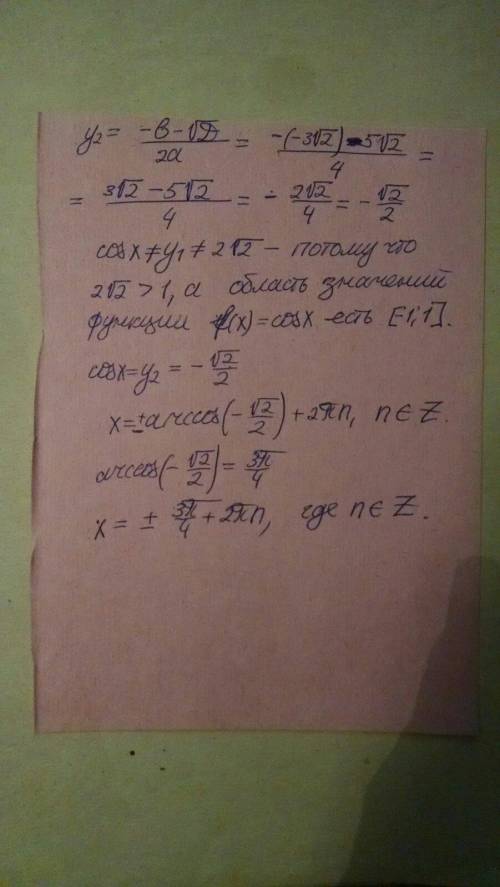 y₂ = (-b - √D)/2a = (-(-3√2) - 5√2)/4 =
= (3√2 - 5√2)/4 = - 2√2/4 = - √2/2
cosx ≠ y₁ ≠ 2√2 – потому что
2√2 > 1, а область значений
функции f(x) = cosx есть [-1; 1].
cosx = y₂ = - √2/2
x = ± arccos(- √2/2) + 2πn, n ∈ Z.
arccos(- √2/2) = 3π/4
x = ± 3π/4 + 2πn, где n ∈ Z.